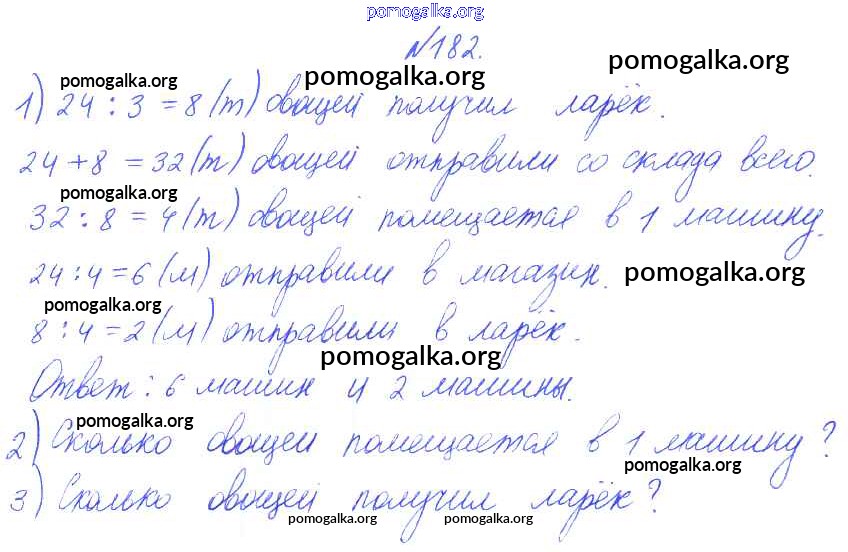 pomogalka.org
№182.
pomogalka.org pomogalka.org pomogalka.org
1) 24 : 3 = 8 (т) овощей получил ларёк.
24 + 8 = 32 (т) овощей отправили со склада всего.
pomogalka.org
32 : 8 = 4 (т) овощей помещается в 1 машину.
24 : 4 = 6 (м) отправили в магазин. pomogalka.org
pomogalka.org
8 : 4 = 2 (м) отправили в ларёк.
pomogalka.org
Ответ: 6 машин и 2 машины.
pomogalka.org
2) Сколько овощей помещается в 1 машину?
pomogalka.org
3) Сколько овощей получил ларёк?
pomogalka.org pomogalka.org